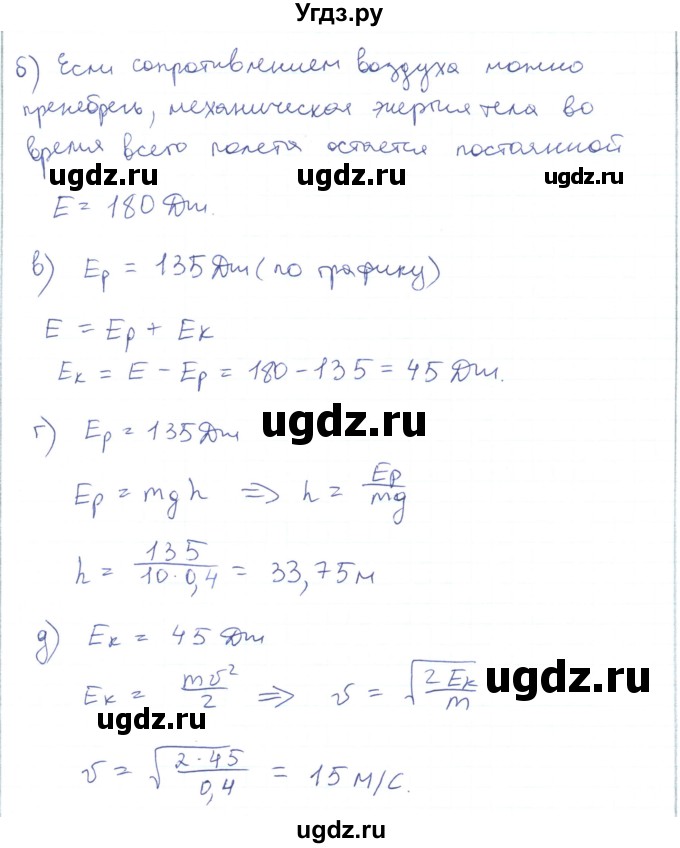 Угдз.ру
б) Если сопротивлением воздуха можно
пренебречь, механическая энергия тела во
время всего полета остается постоянной
ugdz.ru ugdz.ru ugdz.ru
E = 180 Дж.
в) Ep = 135 Дж (по графику)
E = Ep + Ek
Ek = E - Ep = 180 - 135 = 45 Дж.
г) Ep = 135 Дж
ugdz.ru
Ep = mgh => h = Ep/mg
h = 135/10·0,4 = 33,75 м
д) Ek = 45 Дж
Ek = mv²/2 => v = √2Ek/m
ugdz.ru
ugdz.ru
v = √2·45/0,4 = 15 м/с.
ugdz.ru